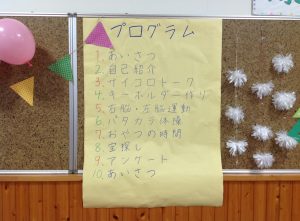 プログラム
1. あいさつ
2. 自己紹介
3. サイコロトーク
4. キーホルダー作り
5. 右脳・左脳運動
6. パタカラ体操
7. おやつの時間
8. 宝探し
9. アンケート
10. あいさつ